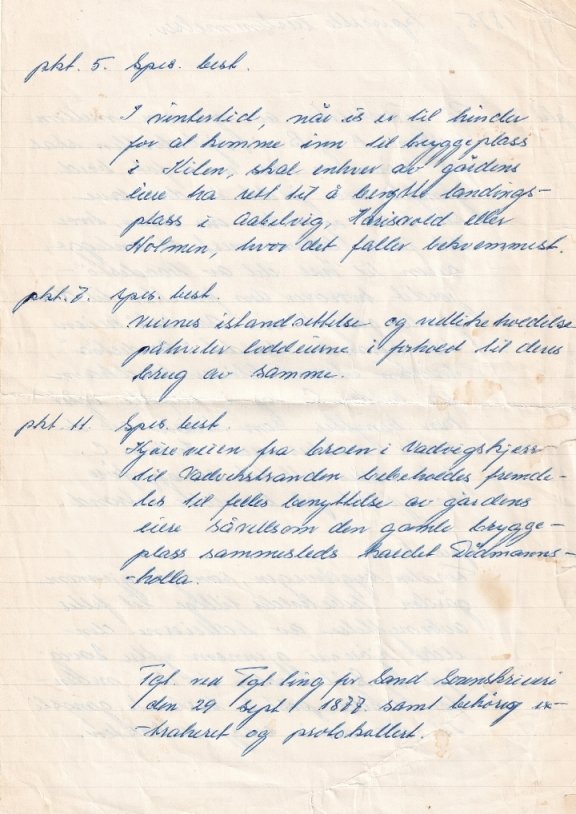 pkt. 5. Spes. best.
I vintertid, når is er til hinder
for at komme inn til bryggeplass
i Kilen, skal enhver av gårdens
eiere ha rett til å benytte landings-
plass i Aabelvig, Hæstvold eller
Holmen, hvor det faller bekvemmest.
pkt. 7. spes. best.
Veienes istandsettelse og vedlikeholdelse
påhviler loddeierne i forhold til deres
brug av samme.
pkt. 11. Spes. best.
Kjøreveien fra broen i Vadvigskjerr
til Vadvigstranden bebeholdes fremde-
les til felles benyttelse av gårdens
eiere såvellsom den gamle brygge-
plass sammesteds kaldet Dödmanns-
-holla.
Tgl. ved Tgl. ting for Sand Sorenskriveri
den 29 Sept 1877 samt behörig ex-
traheret og protokollert.